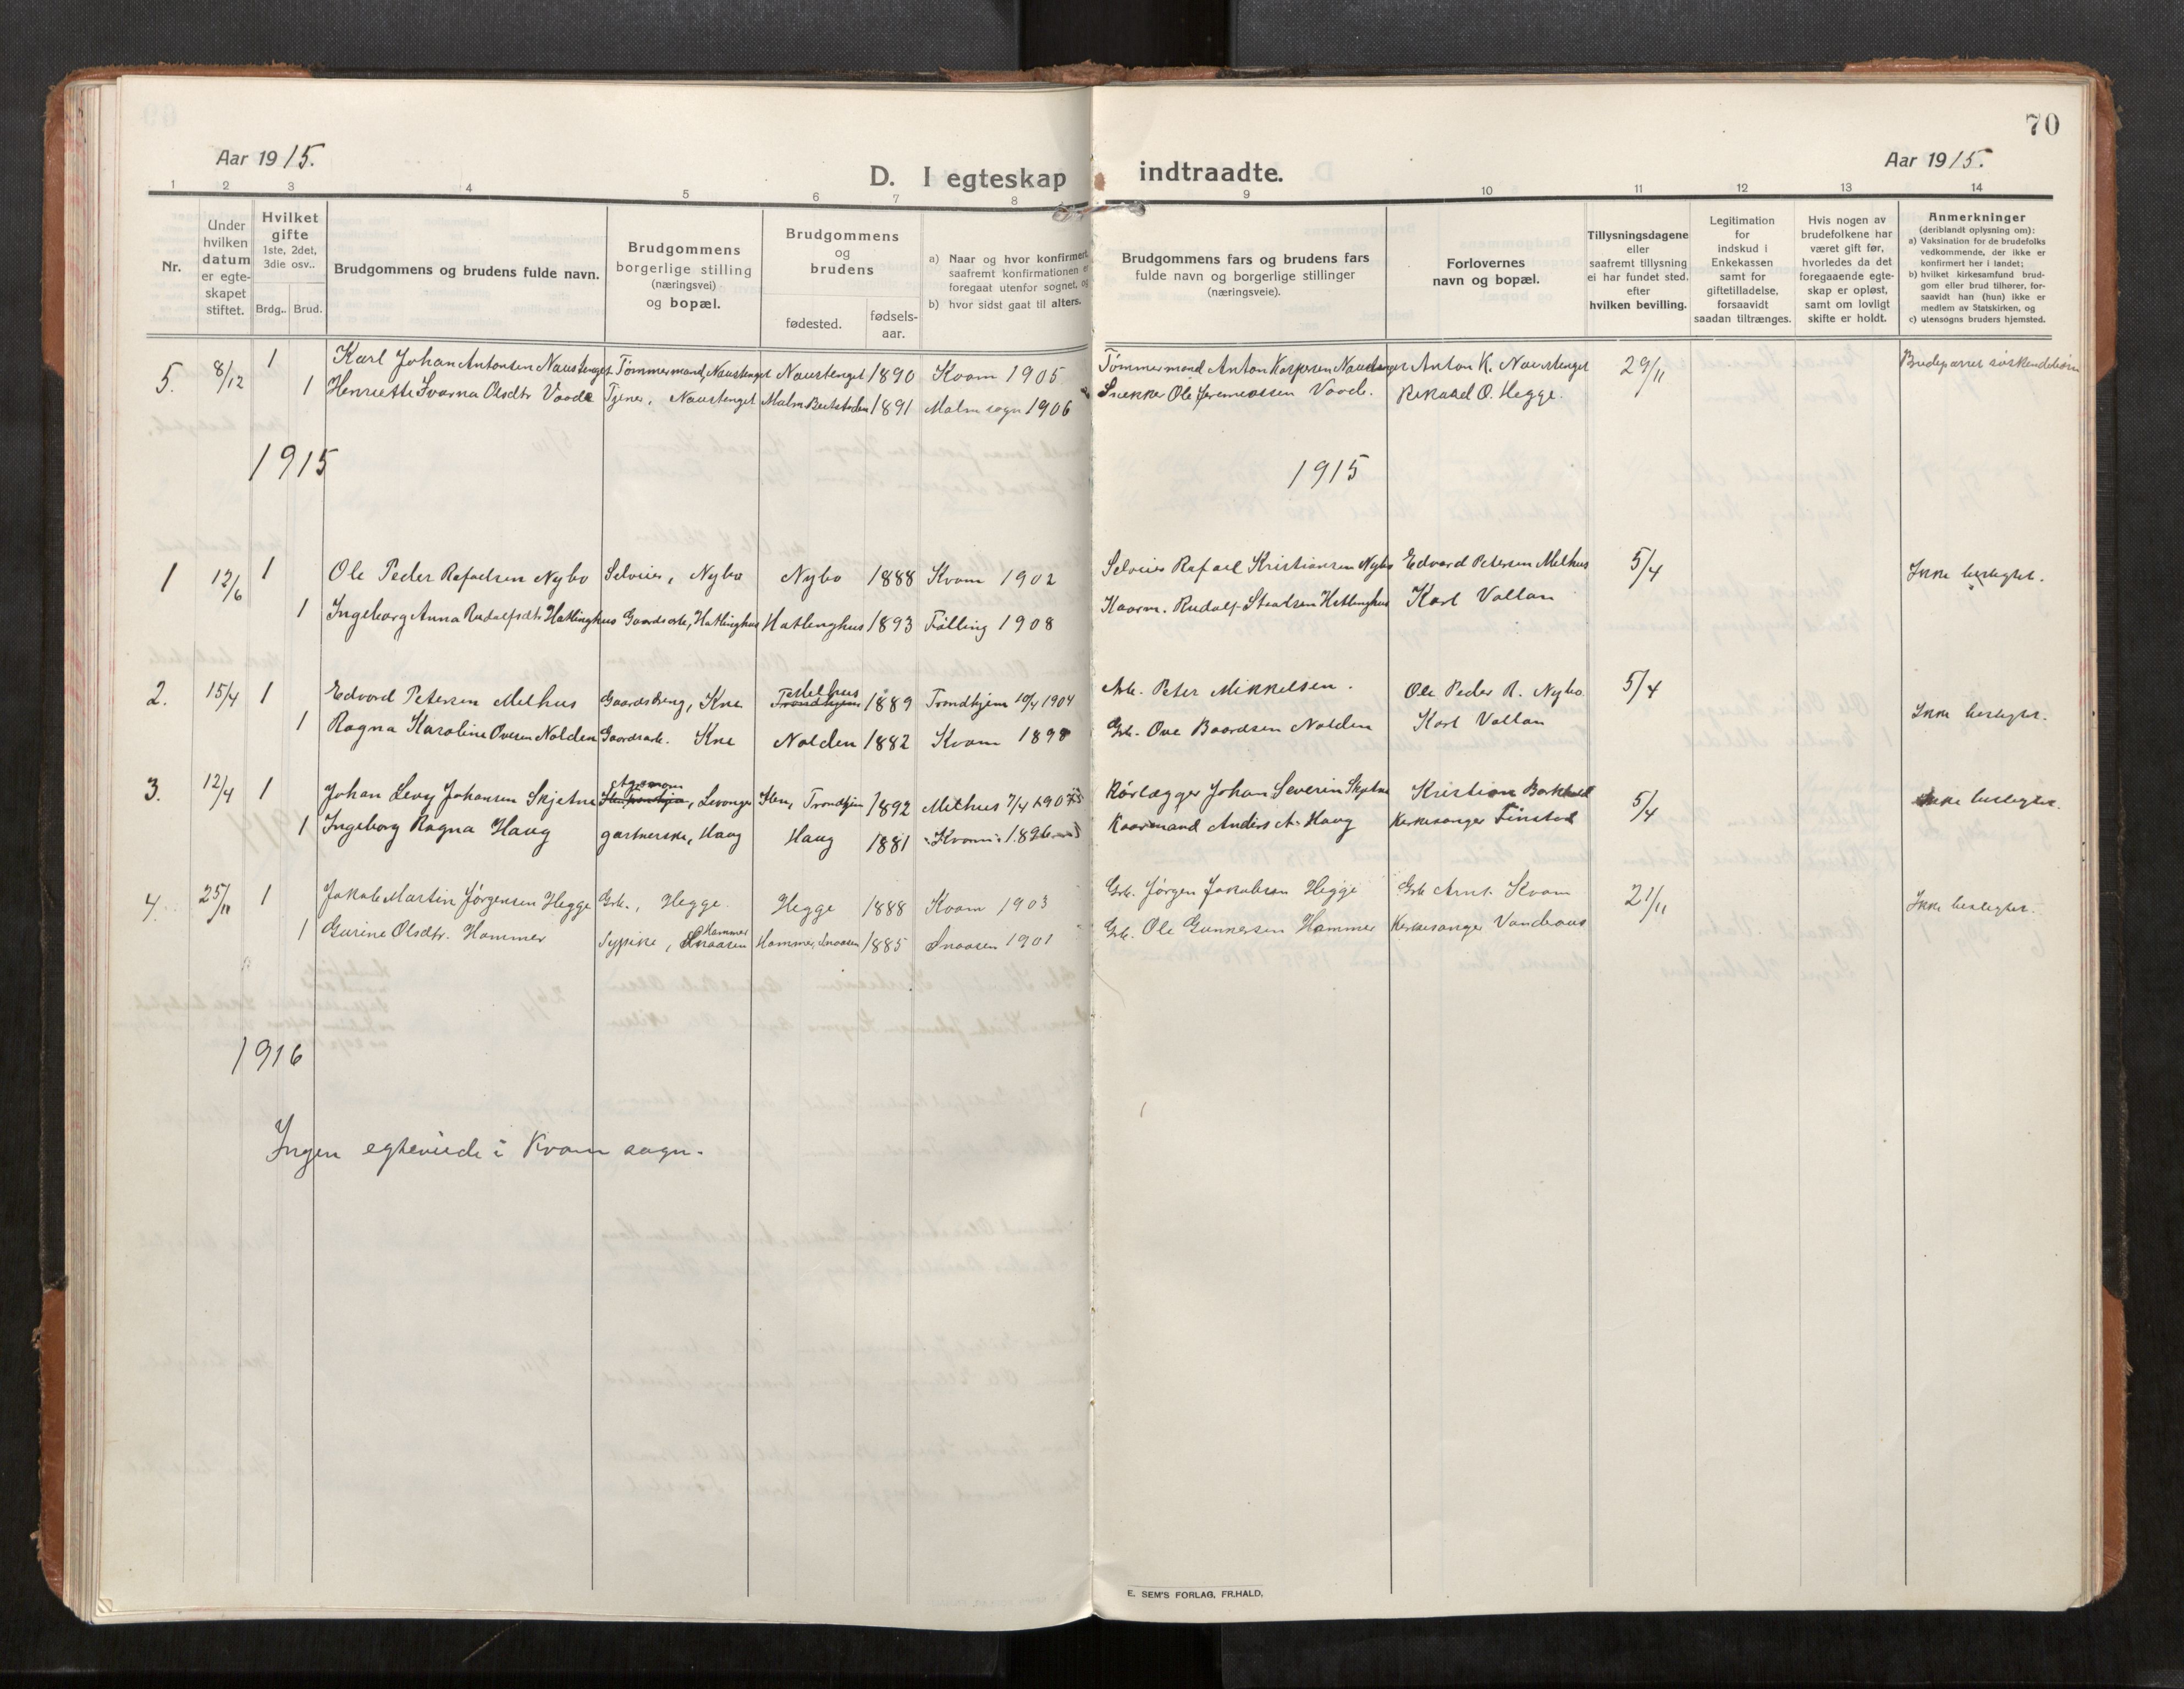 70
Aar 1915.
D. I egteskap indtraadte.
Aar 1915.
1 2 3 4 5 6 7 8 9 10 11 12 13 14
Nr.
Under hvilken datum er egteskapet stiftet.
Hvilket gifte 1ste, 2det, 3die osv..
Brdg.. Brud.
Brudgommens og brudens fulde navn.
Brudgommens borgerlige stilling (næringsvei) og bopæl.
Brudgommens og brudens
fødested.
fødsels-aar.
a) Naar og hvor konfirmert, saafremt konfirmationen er foregaat utenfor sognet, og
b) hvor sidst gaat til alters.
Brudgommens fars og brudens fars fulde navn og borgerlige stillinger (næringsveie).
Forlovernes navn og bopæl.
Tillysningsdagene eller saafremt tillysning ei har fundet sted, efter hvilken bevilling.
Legitimation for indskud i Enkekassen samt for giftetilladelse, forsaavidt saadan tiltrænges.
Hvis nogen av brudefolkene har været gift før, hvorledes da det foregaaende egteskap er opløst, samt om lovligt skifte er holdt.
Anmerkninger (deriblandt oplysning om):
a) Vaksination for de brudefolks vedkommende, der ikke er konfirmert her i landet;
b) hvilket kirkesamfund brudgom eller brud tilhører, forsaavidt han (hun) ikke er medlem av Statskirken, og
c) utensogns bruders hjemsted.
5. 8/12 1 Karl Johan Antonsen Naustenget Tømmermand, Naustenget Naustenget 1890 Kvam 1905 Tømmermand Anton Kaspersen Naustenget Anton K. Naustenget 29/11 Brudeparret søskendebørn
1 Henriette Ivarna Olsdtr Vaade Tjener, Naustenget Malm Beitstaden 1891 Malm sogn 1906 Snekker Ole Jeremiassen Vaade. Rikard O. Hegge.
1915 1915
1 12/6 1 Ole Peder Rafaelsen Nybo Selveier, Nybo Nybo 1888 Kvam 1902 Selveier Rafael Kristiansen Nybo Edvard Petersen Melhus 5/4 Ikke beslegtet.
1 Ingeborg Anna Rudolfsdtr Hatlinghus Gaardsarb., Hatlinghus Hatlinghus 1893 Følling 1908 Kaarm. Rudolf Hatlinghus Karl Vallan
2. 15/4 1 Edvard Petersen Melhus Gaardsdreng, Kne Melhus Trondhjem 1889 Trondhjem 10/4 1904 Arb. Peter Mikkelsen. Ole Peder R. Nybo. 5/4 Ikke beslegtet.
1 Ragna Karoline Ovesen Nolden Gaardsarb. Kne Nolden 1882 Kvam 1898 Grb. Ove Baardsen Nolden Karl Vallan
3. 12/4 1 Johan Levy Johansen Skjetne Agronom, Levanger Ilen, Trondhjem 1892 Melhus 7/4 1907 Rørlægger Johan Severin Skjetne Kristian 5/4 Ikke beslegtet.
1 Ingeborg Ragna Haug gartnerske, Haug Haug 1881 Kvam 1896 Kaarmand Anders A. Haug Kirkesanger Finstad
4. 25/11 1 Jakob Martin Jørgensen Hegge Grb., Hegge. Hegge 1888 Kvam 1903 Grb. Jørgen Jakobsen Hegge Grb. Arnt Kvam 21/11 Ikke beslegtet.
1 Gurine Olsdtr. Hammer Sypike, Hammer Snaasen Hammer, Snaasen 1885 Snaasen 1901 Grb. Ole Gunnersen Hammer Kirkesanger
1916
Ingen egteviede i Kvam sogn.
E. SEM'S FORLAG, FR.HALD,